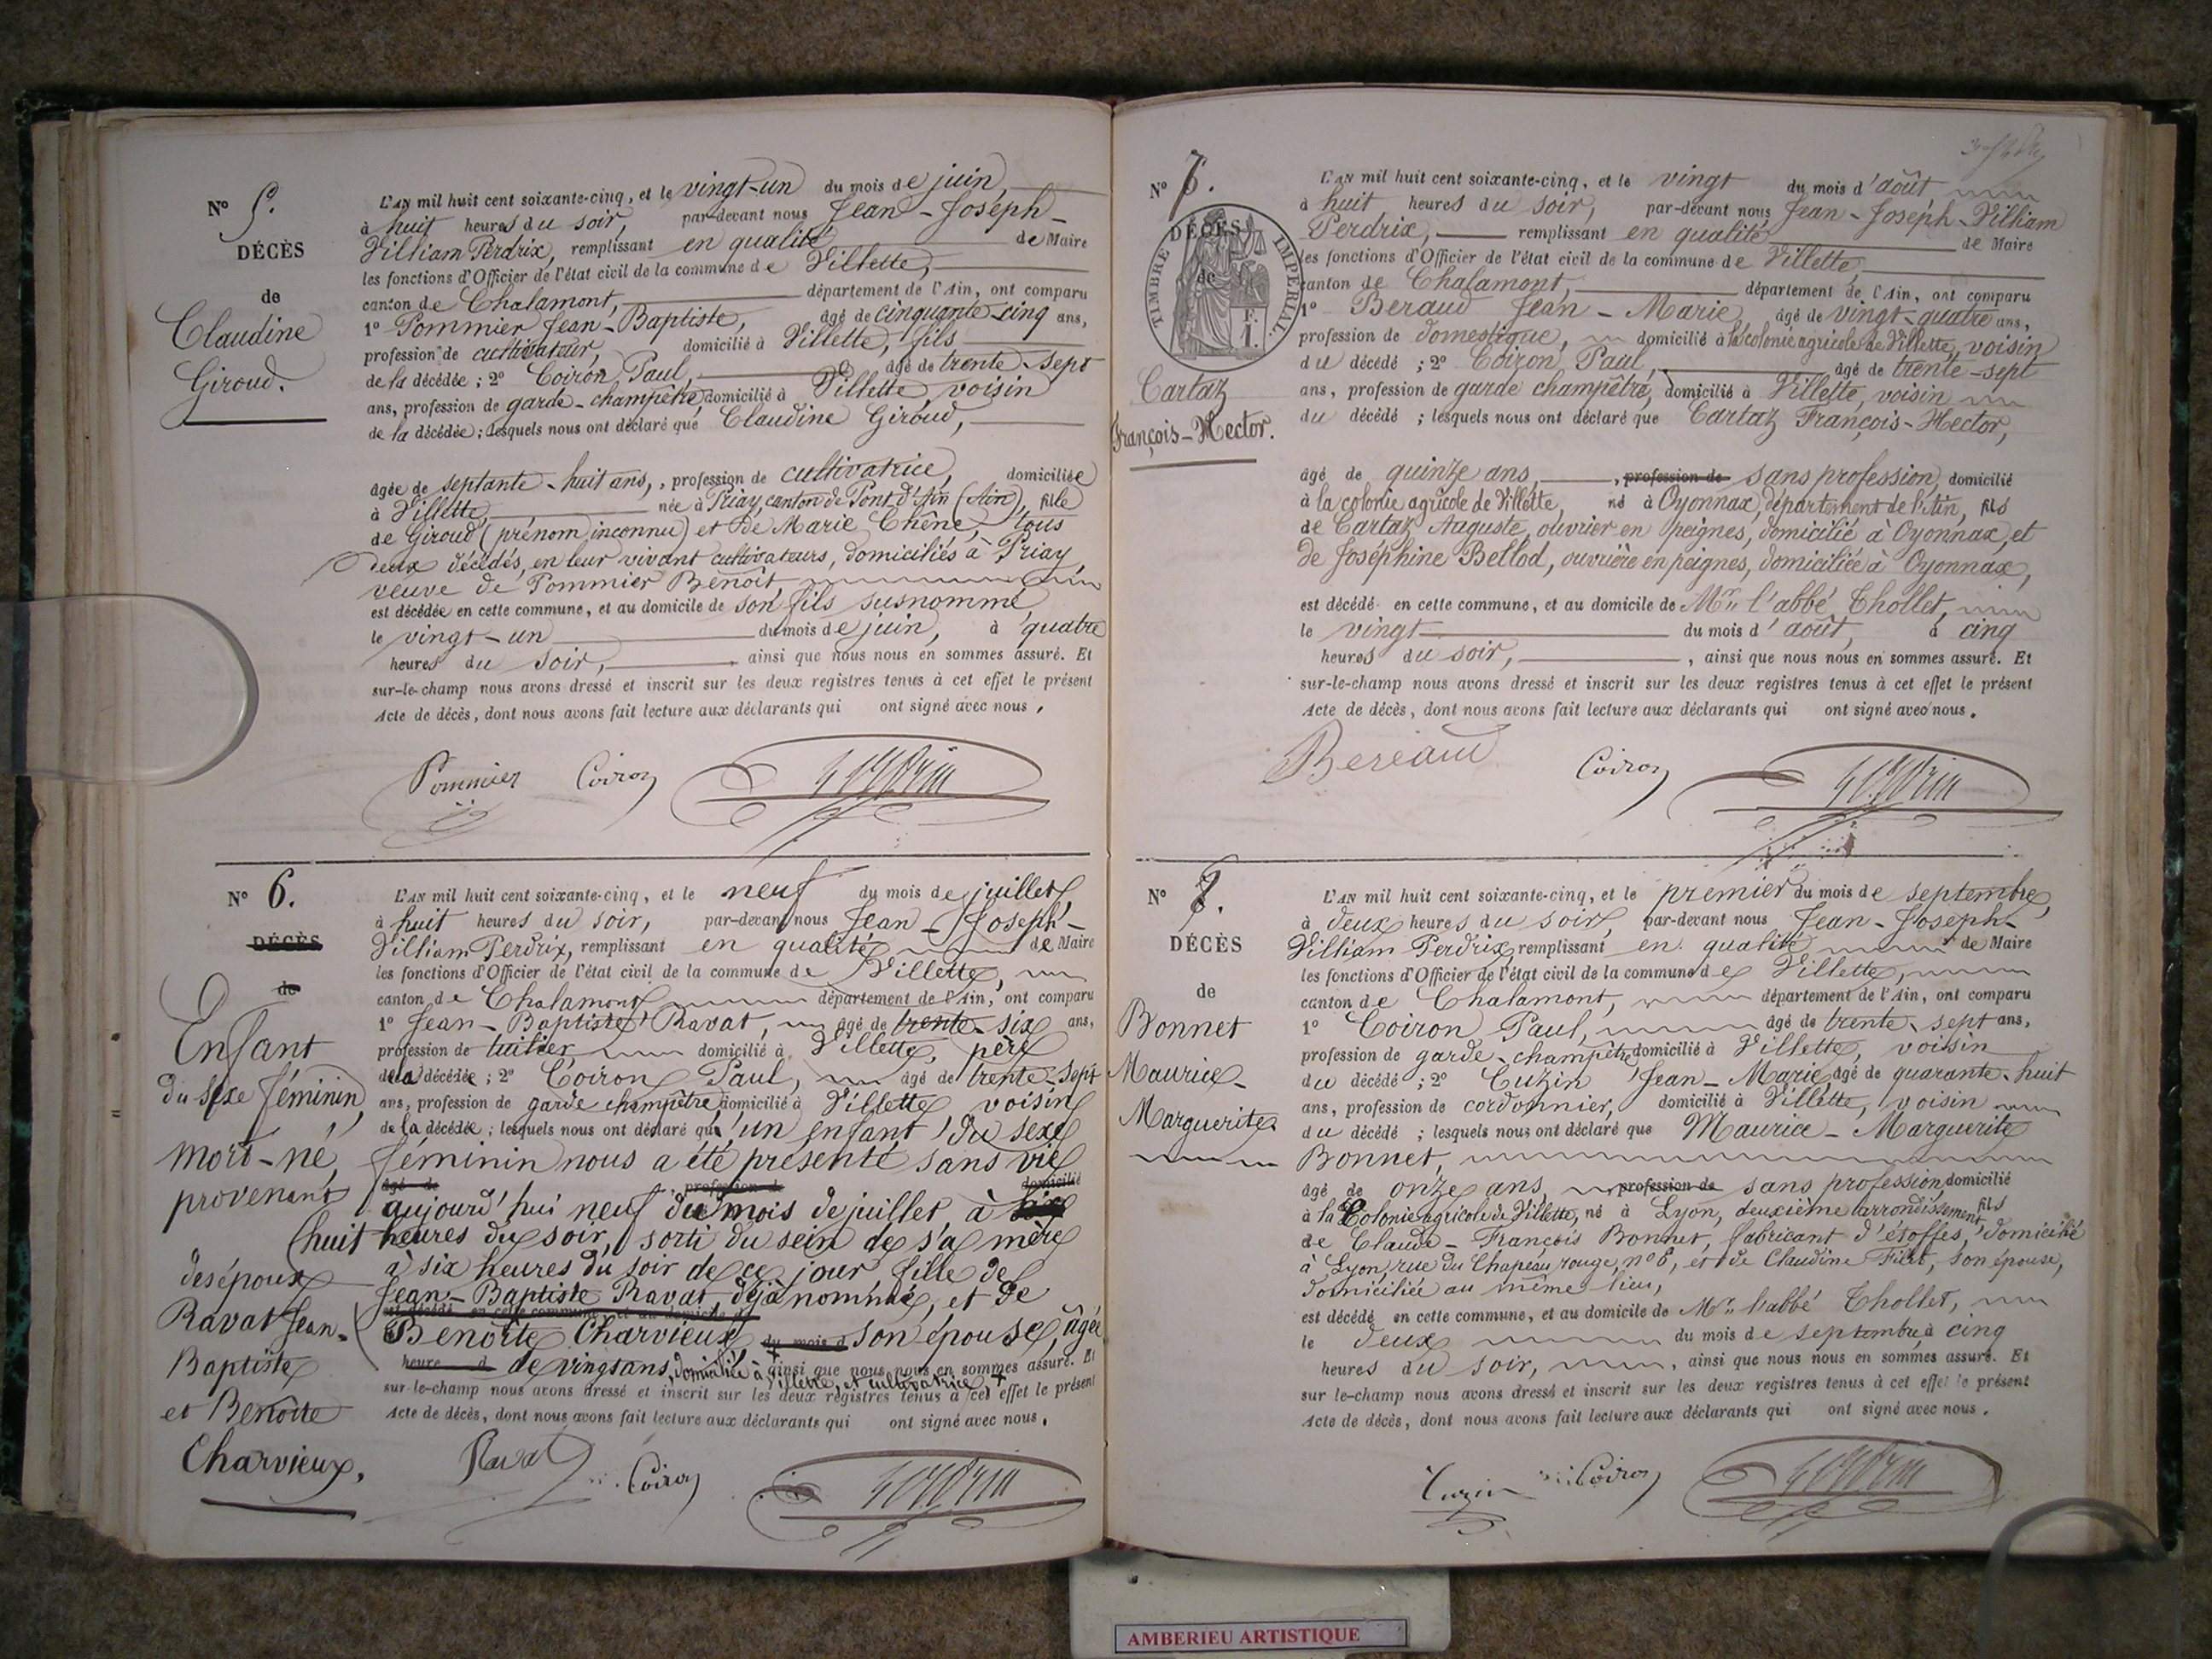 N° 5.
DÉCÈS
de
Claudine
Giroud.
L'AN mil huit cent soixante-cinq, et le vingt-un du mois de juin,
à huit heures du soir, par-devant nous Jean-Joseph-
Villiam Perdrix, remplissant en qualité de Maire
les fonctions d'Officier de l'état civil de la commune de Villette,
canton de Chalamont, département de l'Ain, ont comparu
1° Pommier Jean-Baptiste, âgé de cinquante-cinq ans,
profession de cultivateur, domicilié à Villette, fils
de la décédée ; 2° Coiron Paul, âgé de trente-sept
ans, profession de garde-champêtre, domicilié à Villette, voisin
de la décédée ; lesquels nous ont déclaré que Claudine Giroud,
âgée de septante-huit ans, profession de cultivatrice, domiciliée
à Villette, née à Priay, canton de Pont-d'Ain (Ain), fille
de Giroud (prénom inconnu) et de Marie Chêne, tous
deux décédés, en leur vivant cultivateurs, domiciliés à Priay,
veuve de Pommier Benoît,
est décédée en cette commune, et au domicile de son fils susnommé
le vingt-un du mois de juin, à quatre
heures du soir, ainsi que nous nous en sommes assuré. Et
sur-le-champ nous avons dressé et inscrit sur les deux registres tenus à cet effet le présent
Acte de décès, dont nous avons fait lecture aux déclarants qui ont signé avec nous.
Pommier Coiron
N° 6.
DÉCÈS
de
Enfant
du sexe féminin,
mort-né,
provenant
des époux
Ravat Jean-
Baptiste
et Benoîte
Charvieux,
L'AN mil huit cent soixante-cinq, et le neuf du mois de juillet,
à huit heures du soir, par-devant nous Jean-Joseph-
Villiam-Perdrix, remplissant en qualité de Maire
les fonctions d'Officier de l'état civil de la commune de Villette,
canton de Chalamont, département de l'Ain, ont comparu
1° Jean-Baptiste Ravat, âgé de trente-six ans,
profession de tuilier domicilié à Villette, père
de la décédée ; 2° Coiron Paul, âgé de trente-sept
ans, profession de garde champêtre, domicilié à Villette voisin
de la décédée ; lesquels nous ont déclaré qu'un enfant du sexe
féminin nous a été présenté sans vie
âgé de profession de domicilié
aujourd'hui neuf du mois de juillet, à
huit heures du soir, sorti du sein de sa mère
à six heures du soir de ce jour, fille de
Jean-Baptiste Ravat déjà nommé, et de
est décédé en cette commune, et au domicile d
Benoîte Charvieux, du mois d son épouse, âgée
heure d de vingt ans, domiciliée à ainsi que nous nous en sommes assuré. Et
Villette, et cultivatrice
sur-le-champ nous avons dressé et inscrit sur les deux registres tenus à cet effet le présent
Acte de décès, dont nous avons fait lecture aux déclarants qui ont signé avec nous.
Ravat Coiron
N° 7.
DÉCÈS
de
TIMBRE IMPÉRIAL.
F.
1.
Cartaz
François-Hector.
L'AN mil huit cent soixante-cinq, et le vingt du mois d'août,
à huit heures du soir, par-devant nous Jean-Joseph-Villiam
Perdrix, remplissant en qualité de Maire
les fonctions d'Officier de l'état civil de la commune de Villette
canton de Chalamont, département de l'Ain, ont comparu
1° Beraud Jean-Marie, âgé de vingt-quatre ans,
profession de domestique, domicilié à la colonie agricole de Villette, voisin
du décédé ; 2° Coiron Paul, âgé de trente-sept
ans, profession de garde champêtre, domicilié à Villette, voisin
du décédé ; lesquels nous ont déclaré que Cartaz François-Hector,
âgé de quinze ans, profession de sans profession, domicilié
à la colonie agricole de Villette, né à Oyonnax, département de l'Ain, fils
de Cartaz Auguste, ouvrier en peignes, domicilié à Oyonnax, et
de Joséphine Bellod, ouvrière en peignes, domiciliée à Oyonnax,
est décédé en cette commune, et au domicile de Mr. l'abbé Thollet,
le vingt du mois d'août, à cinq
heures du soir, ainsi que nous nous en sommes assuré. Et
sur-le-champ nous avons dressé et inscrit sur les deux registres tenus à cet effet le présent
Acte de décès, dont nous avons fait lecture aux déclarants qui ont signé avec nous.
Bereaud Coiron
N° 8.
DÉCÈS
de
Bonnet
Maurice-
Marguerite
L'AN mil huit cent soixante-cinq, et le premier du mois de septembre,
à deux heures du soir, par-devant nous Jean-Joseph-
Villiam Perdrix, remplissant en qualité de Maire
les fonctions d'Officier de l'état civil de la commune de Villette,
canton de Chalamont, département de l'Ain, ont comparu
1° Coiron Paul, âgé de trente-sept ans,
profession de garde-champêtre, domicilié à Villette, voisin
du décédé ; 2° Cuzin Jean-Marie, âgé de quarante-huit
ans, profession de cordonnier, domicilié à Villette, voisin
du décédé ; lesquels nous ont déclaré que Maurice-Marguerite
Bonnet,
âgé de onze ans, profession de sans profession, domicilié
à la Colonie agricole de Villette, né à Lyon, deuxième arrondissement, fils
de Claude-François Bonnet, fabricant d'étoffes, domicilié
à Lyon, rue du Chapeau rouge, n° 8, et de Claudine Filet, son épouse,
domiciliée au même lieu,
est décédé en cette commune, et au domicile de Mr. l'abbé Thollet,
le deux du mois de septembre, à cinq
heures du soir, ainsi que nous nous en sommes assuré. Et
sur-le-champ nous avons dressé et inscrit sur les deux registres tenus à cet effet le présent
Acte de décès, dont nous avons fait lecture aux déclarants qui ont signé avec nous.
Cuzin Coiron
AMBERIEU ARTISTIQUE